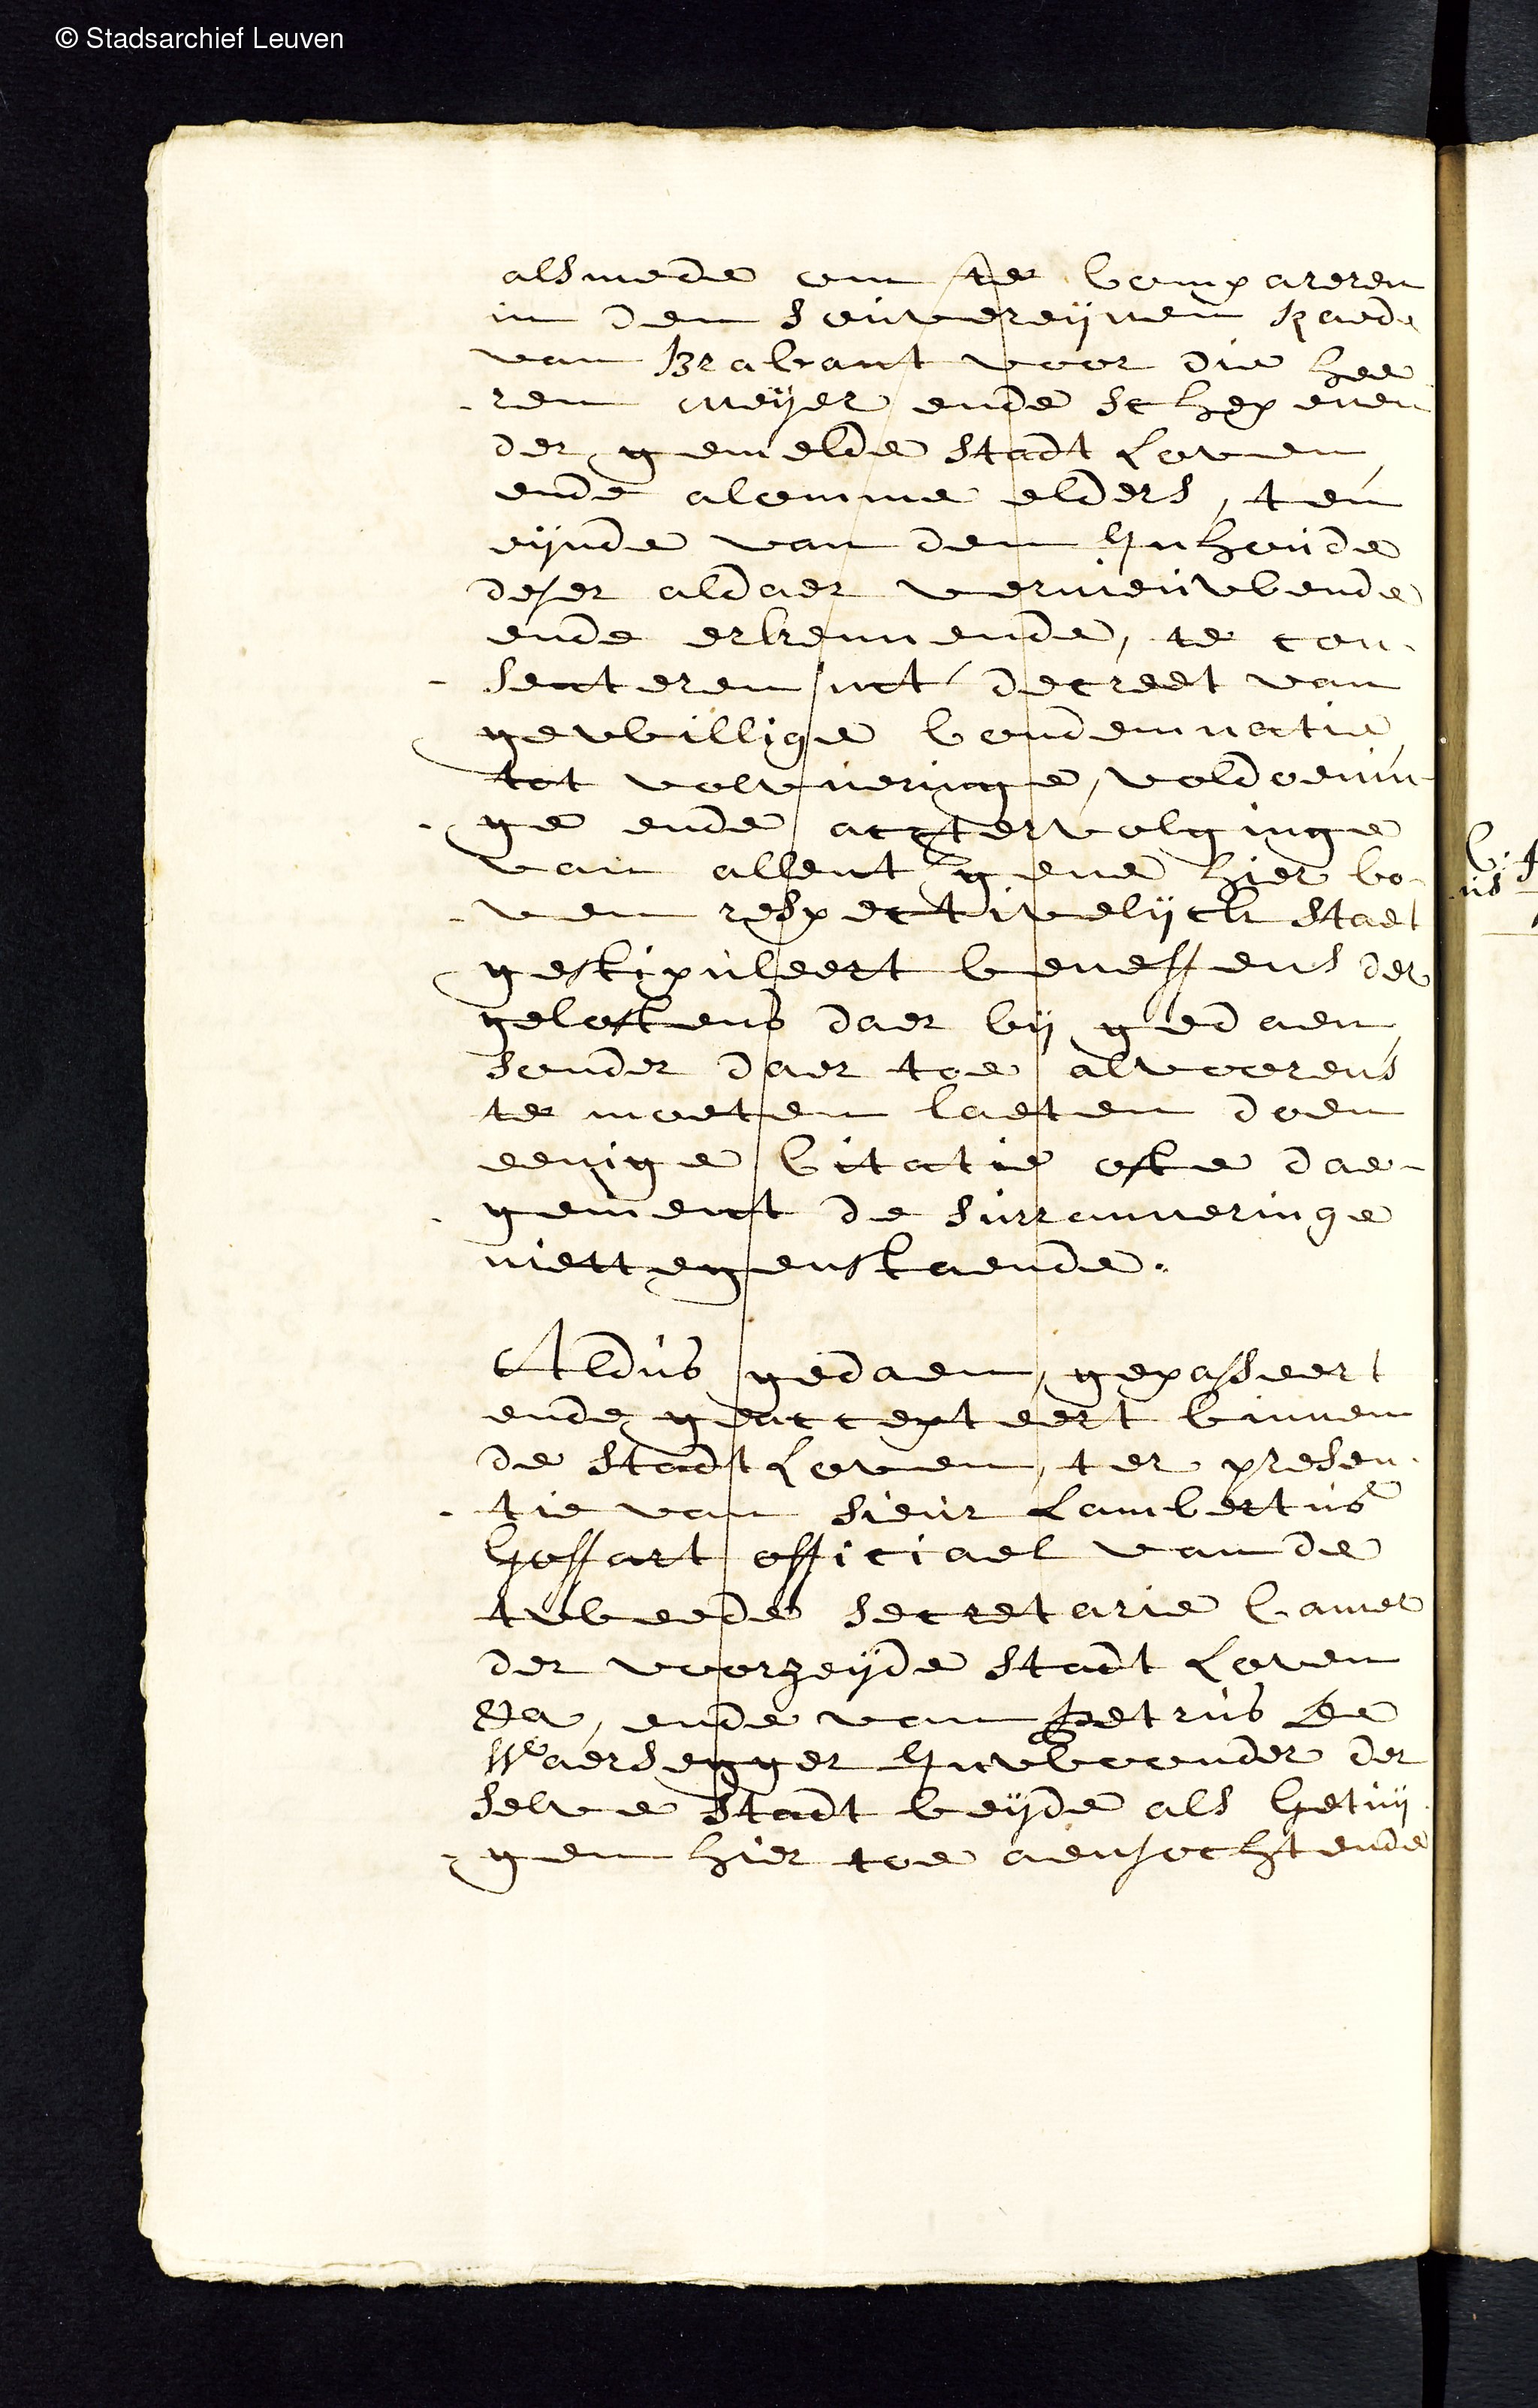 © Stadsarchief Leuven
alsmede om te Compareren
in den souvereijnen Raede
van Brabant voor die hee
-ren meijer ende schepenen
der gemelde stadt Loven,
ende alomme elders, ten
eijnde van den Inhoude
deser aldaer vernieuwende
ende erkennende, te con-
-senteren int decreet van
gewillige Condemnatie,
tot volvueringe, voldoenin-
-ge ende acctervolginge
van allent gene hier bo-
-ven respectivelijck staet
gestipuleert beneffens der
geloftens daer bij gedaen,
sonder daer toe alvoorens
te moeten laeten doen
eenige Citatie ofte dae-
-gement de surranneringe
niettegenstaende.
Aldus gedaen, gepasseert
ende geaccepteert binnen
de stadt Loven, ter presen-
-tie van sieur Lambertus
Goffart officiael van de
tweede secretarie Camer
der voorzeijde stadt Loven
ende van Petrus De
Waersegger Inwoonder der
selve stadt beijde als Getuij-
-gen hier toe aensochtende